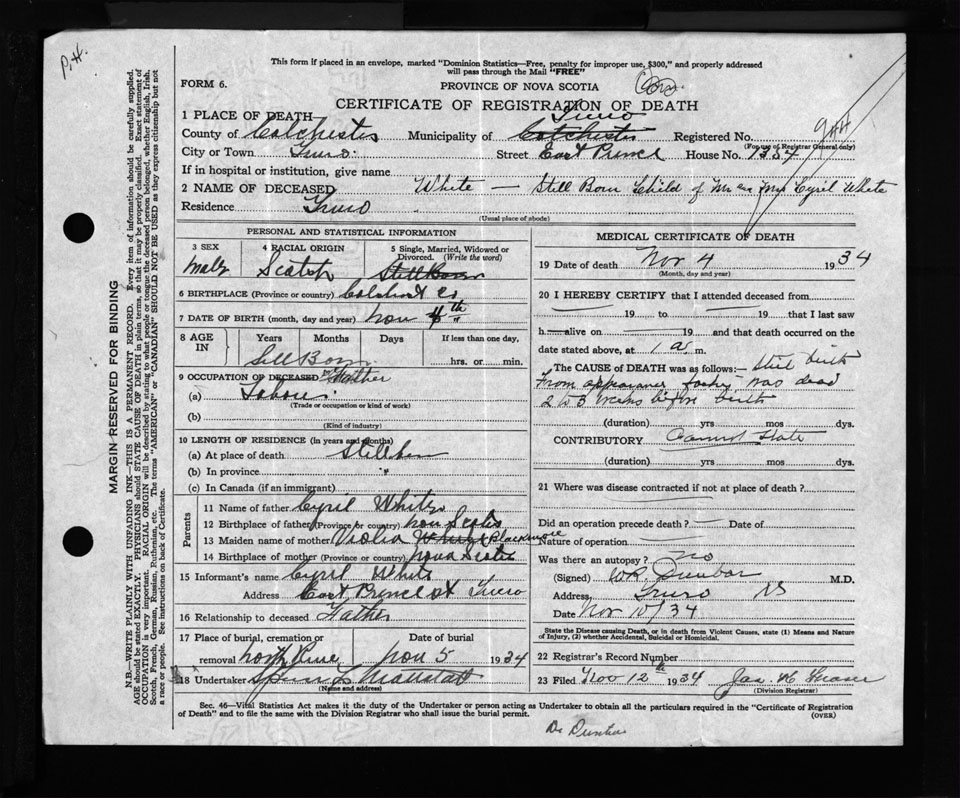 P.H.
This form if placed in an envelope, marked "Dominion Statistics—Free, penalty for improper use, $300," and properly addressed
will pass through the Mail "FREE"
FORM 6.
PROVINCE OF NOVA SCOTIA
CERTIFICATE OF REGISTRATION OF DEATH
1 PLACE OF DEATH
Truro
County of Colchester Municipality of Colchester Registered No.
(For use of Registrar General only)
City or Town Truro. Street East Prince House No. 1354
If in hospital or institution, give name
2 NAME OF DECEASED White — Still Born Child of Mr and Mrs Cyril White
Residence Truro
(Usual place of abode)
PERSONAL AND STATISTICAL INFORMATION
3 SEX 4 RACIAL ORIGIN 5 Single, Married, Widowed or Divorced. (Write the word)
Male Scotch Still Born
6 BIRTHPLACE (Province or country) Colchest Co
7 DATE OF BIRTH (month, day and year) Nov 4th
8 AGE IN Years Months Days If less than one day,
hrs. or min.
Still Born
9 OCCUPATION OF DECEASED or Father
(a) Labour
(Trade or occupation or kind of work)
(b)
(Kind of industry)
10 LENGTH OF RESIDENCE (in years and months)
(a) At place of death Stillborn
(b) In province "
(c) In Canada (if an immigrant)
Parents
11 Name of father Cyril White
12 Birthplace of father (Province or country) Nova Scotia
13 Maiden name of mother Violia White Blackmore
14 Birthplace of mother (Province or country) Nova Scotia
15 Informant's name Cyril White
Address East Prince St Truro
16 Relationship to deceased Father
17 Place of burial, cremation or removal Date of burial
North River Nov 5 1934
18 Undertaker
(Name and address)
MEDICAL CERTIFICATE OF DEATH
19 Date of death Nov 4 1934
(Month, day and year)
20 I HEREBY CERTIFY that I attended deceased from
19 to 19 that I last saw
h alive on 19 and that death occurred on the
date stated above, at 1 a. m.
The CAUSE OF DEATH was as follows:— Still birth
From appearance was dead
2 to 3 weeks before birth
(duration) yrs mos dys.
CONTRIBUTORY Cannot State
(duration) yrs mos dys.
21 Where was disease contracted if not at place of death?
Did an operation precede death? — Date of
Nature of operation
Was there an autopsy? No
(Signed) W.R. Dunbar M.D.
Address Truro NS
Date Nov 10/34
State the Disease causing Death, or in death from Violent Causes, state (1) Means and Nature
of Injury, (2) whether Accidental, Suicidal or Homicidal.
22 Registrar's Record Number
23 Filed Nov 12th 1934
(Division Registrar)
Sec. 46—Vital Statistics Act makes it the duty of the Undertaker or person acting as Undertaker to obtain all the particulars required in the "Certificate of Registration
of Death" and to file the same with the Division Registrar who shall issue the burial permit.
(OVER)
Dr Dunbar
MARGIN RESERVED FOR BINDING
N.B.—WRITE PLAINLY WITH UNFADING INK—THIS IS A PERMANENT RECORD. Every item of information should be carefully supplied.
AGE should be stated EXACTLY. PHYSICIANS should STATE CAUSE OF DEATH in plain terms, so that it may be properly classified. Exact statement of
OCCUPATION is very important. RACIAL ORIGIN will be described by stating to what people or tongue the deceased person belonged, whether English, Irish,
Scotch, French, German, Russian, Ruthenian, etc. The terms "AMERICAN" or "CANADIAN" SHOULD NOT BE USED as they express citizenship but not
a race or people. See instructions on back of Certificate.